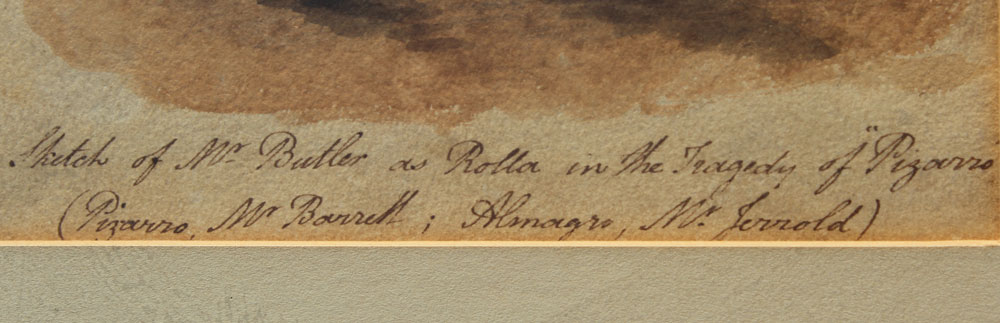 Sketch of Mr Butler as Rolla in the Tragedy of "Pizarro
(Pizarro, Mr Barrett ; Almagro, Mr Jerrold)